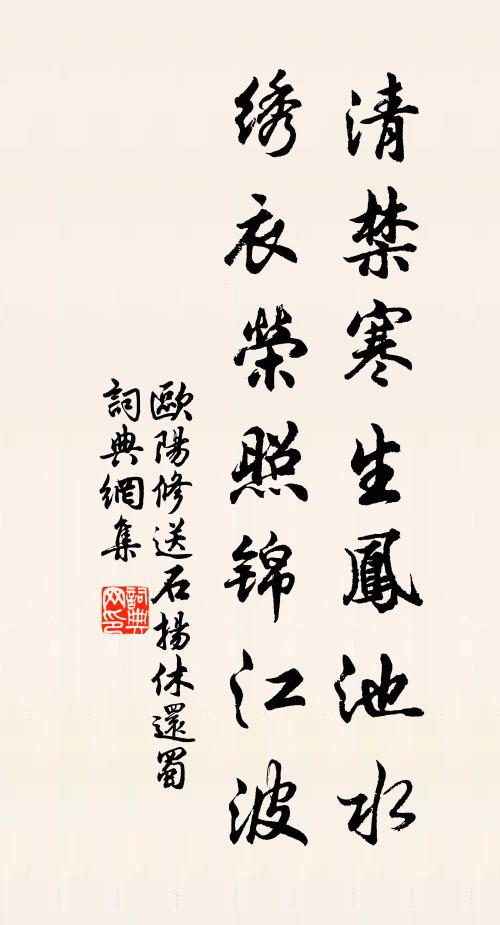 清禁寒生鳳池水
绣衣榮照锦江波
歐陽修送石揚休還蜀
詞典網集
詞典网印